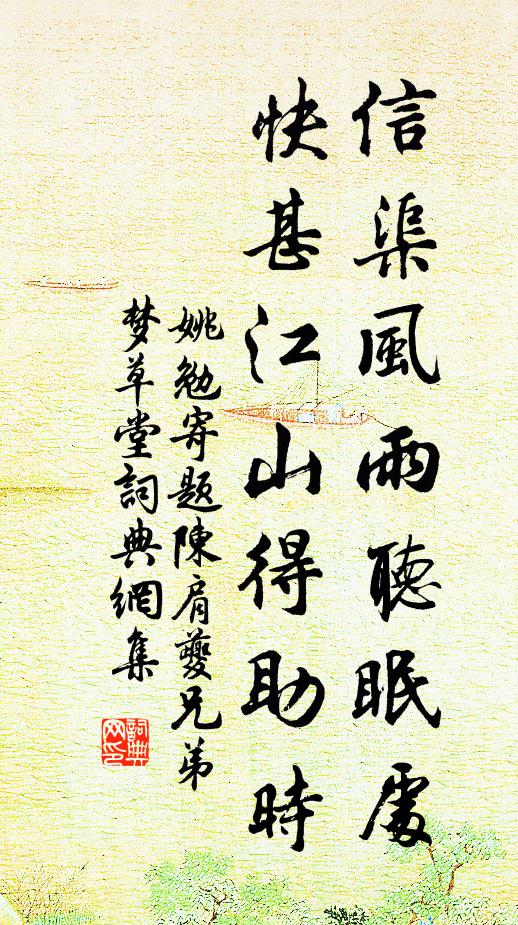 信渠風雨聽眠處
快甚江山得助時
姚勉寄題陳肩夔兄弟
梦草堂詞典網集
詞典网印